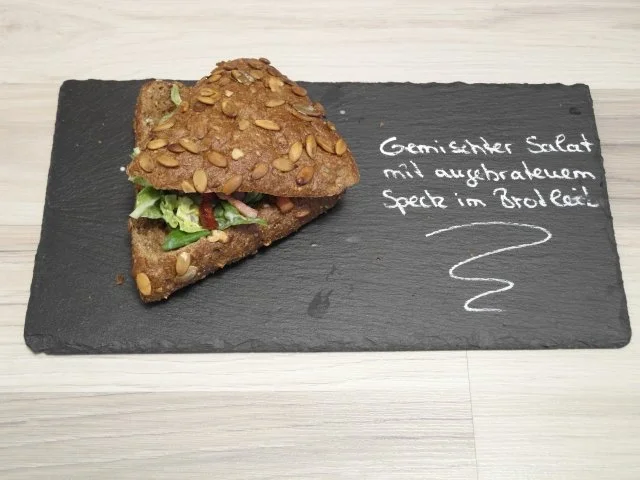 Gemischter Salat
mit angebratenem
Speck im Brotleib